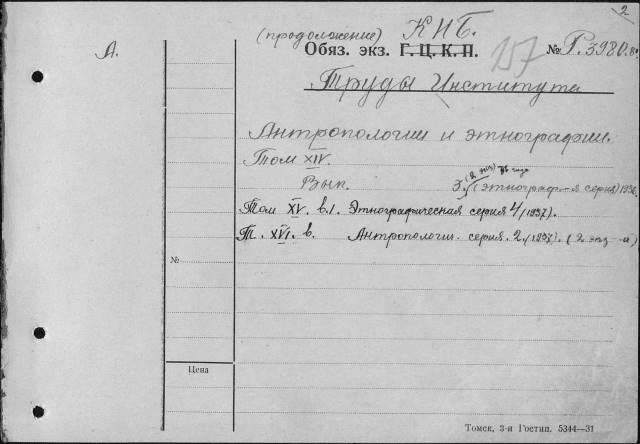 2
(продолжение) К Н Б.
А. Обяз. экз. Г. Ц. К. П. 157 № Р.3980.8º
Труды Института
Антропологии и этнографии.
Том XIV.
(2 экз)
Вып. 3. (этнограф-я серия) 1936
Том XV. в.1. Этнографическая серия 4 (1937).
Т. XVI. в. Антропологич. серия. 2. (1937). (2 экз-й)
№
Цена
Томск, 3-я Гостип. 5344—31